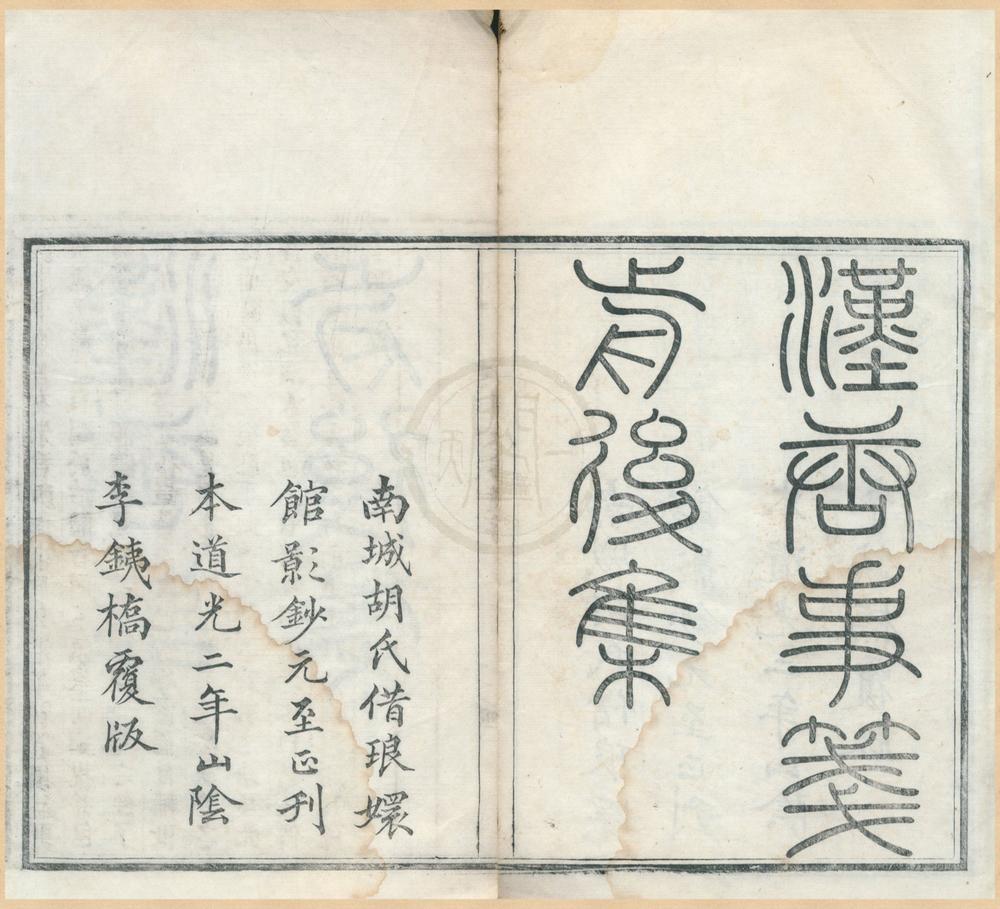 漢唐事箋
前後集
南城胡氏借琅嬛
館影鈔元至正刊
本道光二年山陰
李銕橋覆版